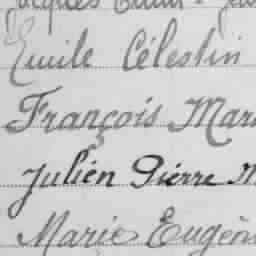 Jacques
Emile Célestin
François Mar
Julien Pierre M
Marie Eugèn